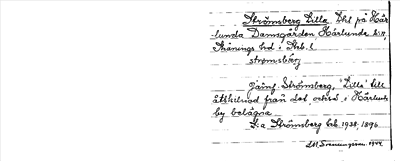 Strömsberg Lilla Lht på Kär
lunda Damsgården Kärlunda sn,
Skånings hd i Skb. l
strømsbärj
Jämf. Strömsberg, "Lilla" till
åtskilnad från det också i Kärlunda
by belägna
S:a Strömsberg Lsb. 1938, 1896
1944